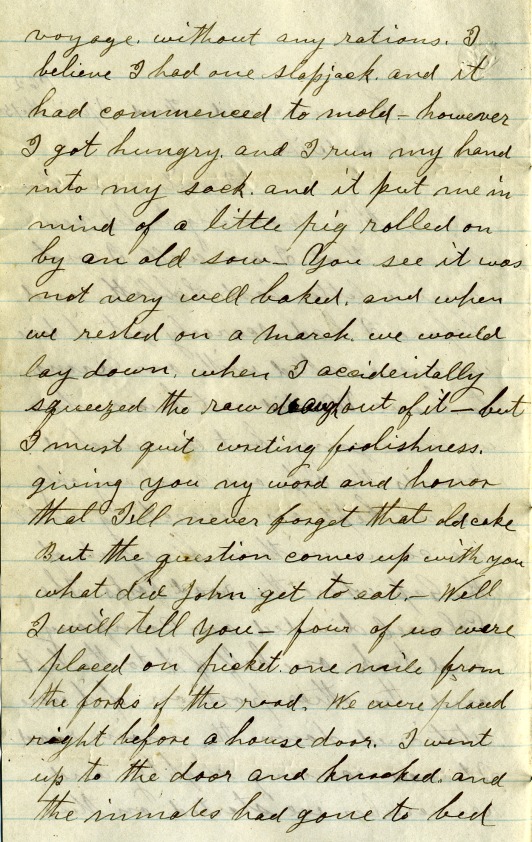 voyage. without any rations. I
believe I had one slapjack. and it
had commenced to mold - however
I got hungry. and I run my hand
into my sack. and it put me in
mind of a little pig rolled on
by an old sow - You see it was
not very well baked. and when
we rested on a march. we would
lay down. when I accidentally
squeezed the raw out of it - but
I must quit writing foolishness.
giving you my word and honor
that I'll never forget that old cake
But the question comes up with you
what did John get to eat - Well
I will tell you - four of us were
placed on picket. one mile from
the forks of the road. We were placed
right before a house door. I went
up to the door and knocked. and
the inmates had gone to bed